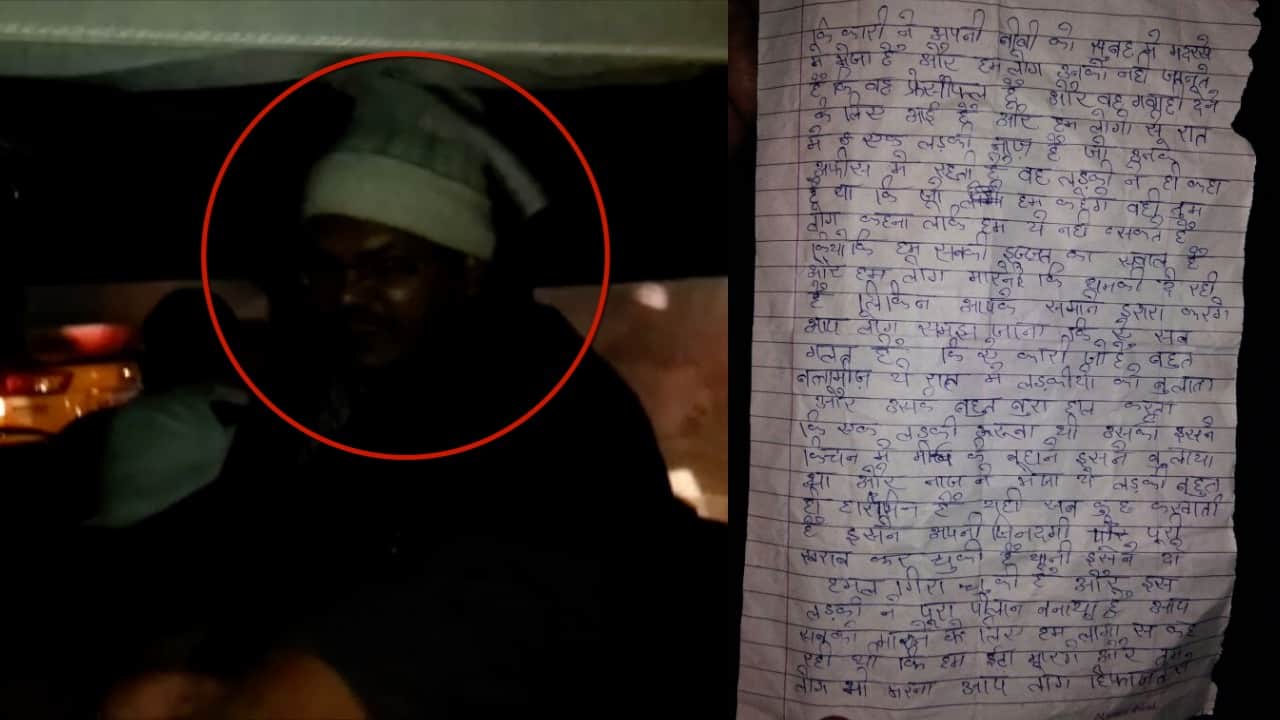 कि कारी ने अपनी बीवी को सुबह से मदरसे
मे भेजा है और हम लोग इनको नही जानते
है कि वह प्रेंसीपल है और वह गवाही देने
के लिए आई है और हम लोगो से रात
मे क एक लड़की नाज़ है जो इनके
ऑफीस मे रहती है वह लड़की ने ही कहा
है था कि जो हम कहेंगे वही तुम
लोग कहना लेकि हम ये नही सकते है
कियोकि हम सबकी इज्जत का सवाल है
और हम लोग मारने कि धमकी दे रही
है लेकिन आपके सामने इसारा करेगे
आप लोग समझ जाना कि ये सब
गलत है कि ये कारी जो है बहुत
बत्तामीज़ ये रात मे लड़कीयो को बुलाता
और उसके बहुत बुरा हाल करता
कि एक लड़की थी उसको इसने
किचन मे के बहाने इसने बुलाया
था और नाज़ ने भेजा ये लड़की बहुत
ही है यही सब कुछ करवाती
है इसने अपनी जिनदगी पूरी
खराब कर चुकी है यानी इसने दो
हमल गिरा चुकी है और इस
लड़की ने पूरा पीलान बनाया है आप
सबको मारने के लिए हम लोगो से कह
रही थी कि हम ईटा मारेगे और तुम
लोग भी मारना आप लोग हिफाजत से